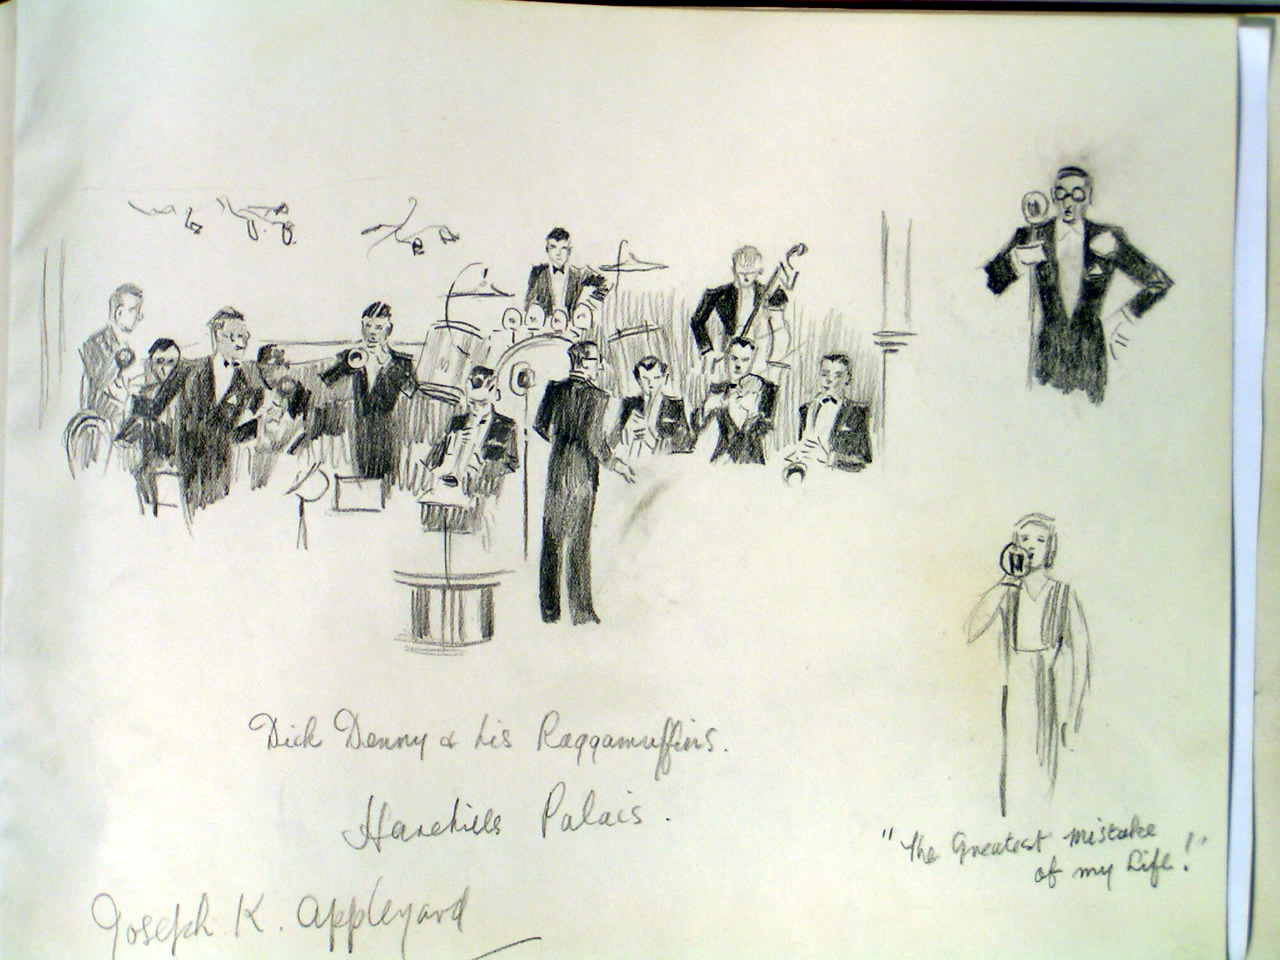 Dick Denny & his Raggamuffins.
Harehills Palais.
"The Greatest mistake
of my Life!"
Joseph K. Appleyard